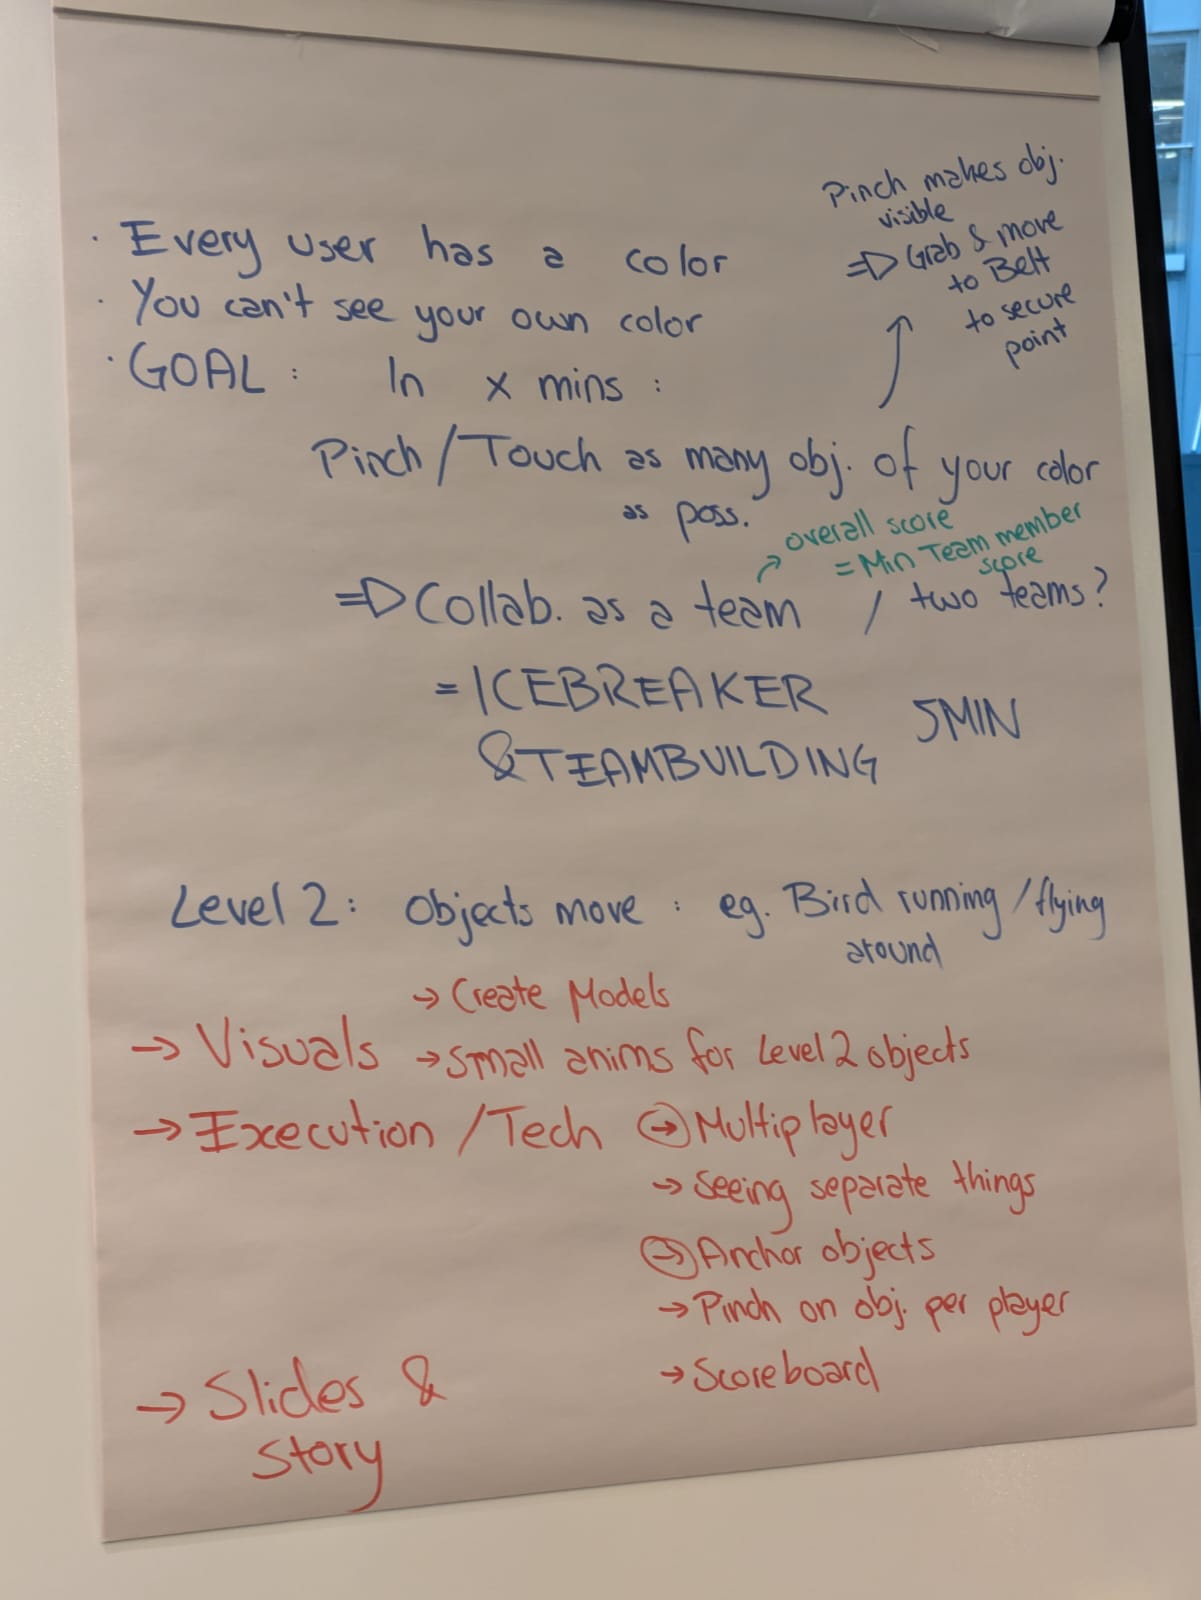 Pinch makes obj.
visible
=> Grab & move
to Belt
to secure
point
· Every user has a color
· You can't see your own color
· GOAL : In x mins :
Pinch / Touch as many obj. of your color
as poss.
→ overall score
= Min Team member
score
=> Collab. as a team / two teams?
= ICEBREAKER
& TEAMBUILDING 5MIN
Level 2 : Objects move : eg. Bird running / flying
around
→ Visuals → Create Models
→ Small anims for Level 2 objects
→ Execution / Tech → Multiplayer
→ Seeing separate things
→ Anchor objects
→ Pinch on obj. per player
→ Scoreboard
→ Slides &
story